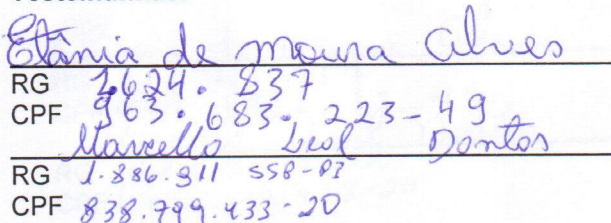 Etânia de Moura Alves
RG 2624.837
CPF 963.683.223-49
Marcello Leal Dantas
RG 1.886.911 SSP-PI
CPF 838.799.433-20